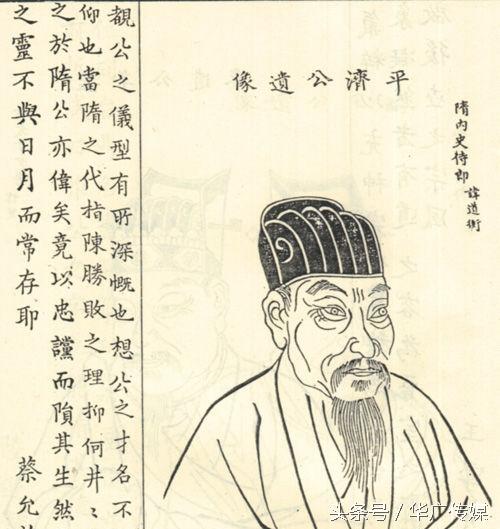 平濟公遺像
隋内史侍郎 諱道衡
覩公之儀型有所深慨也想公之才名不
仰也當隋之代指陳勝敗之理抑何井〻
之於隋公亦偉矣竟以忠讜而隕其生然
之靈不與日月而常存耶 蔡允
头条号 / 华广传媒